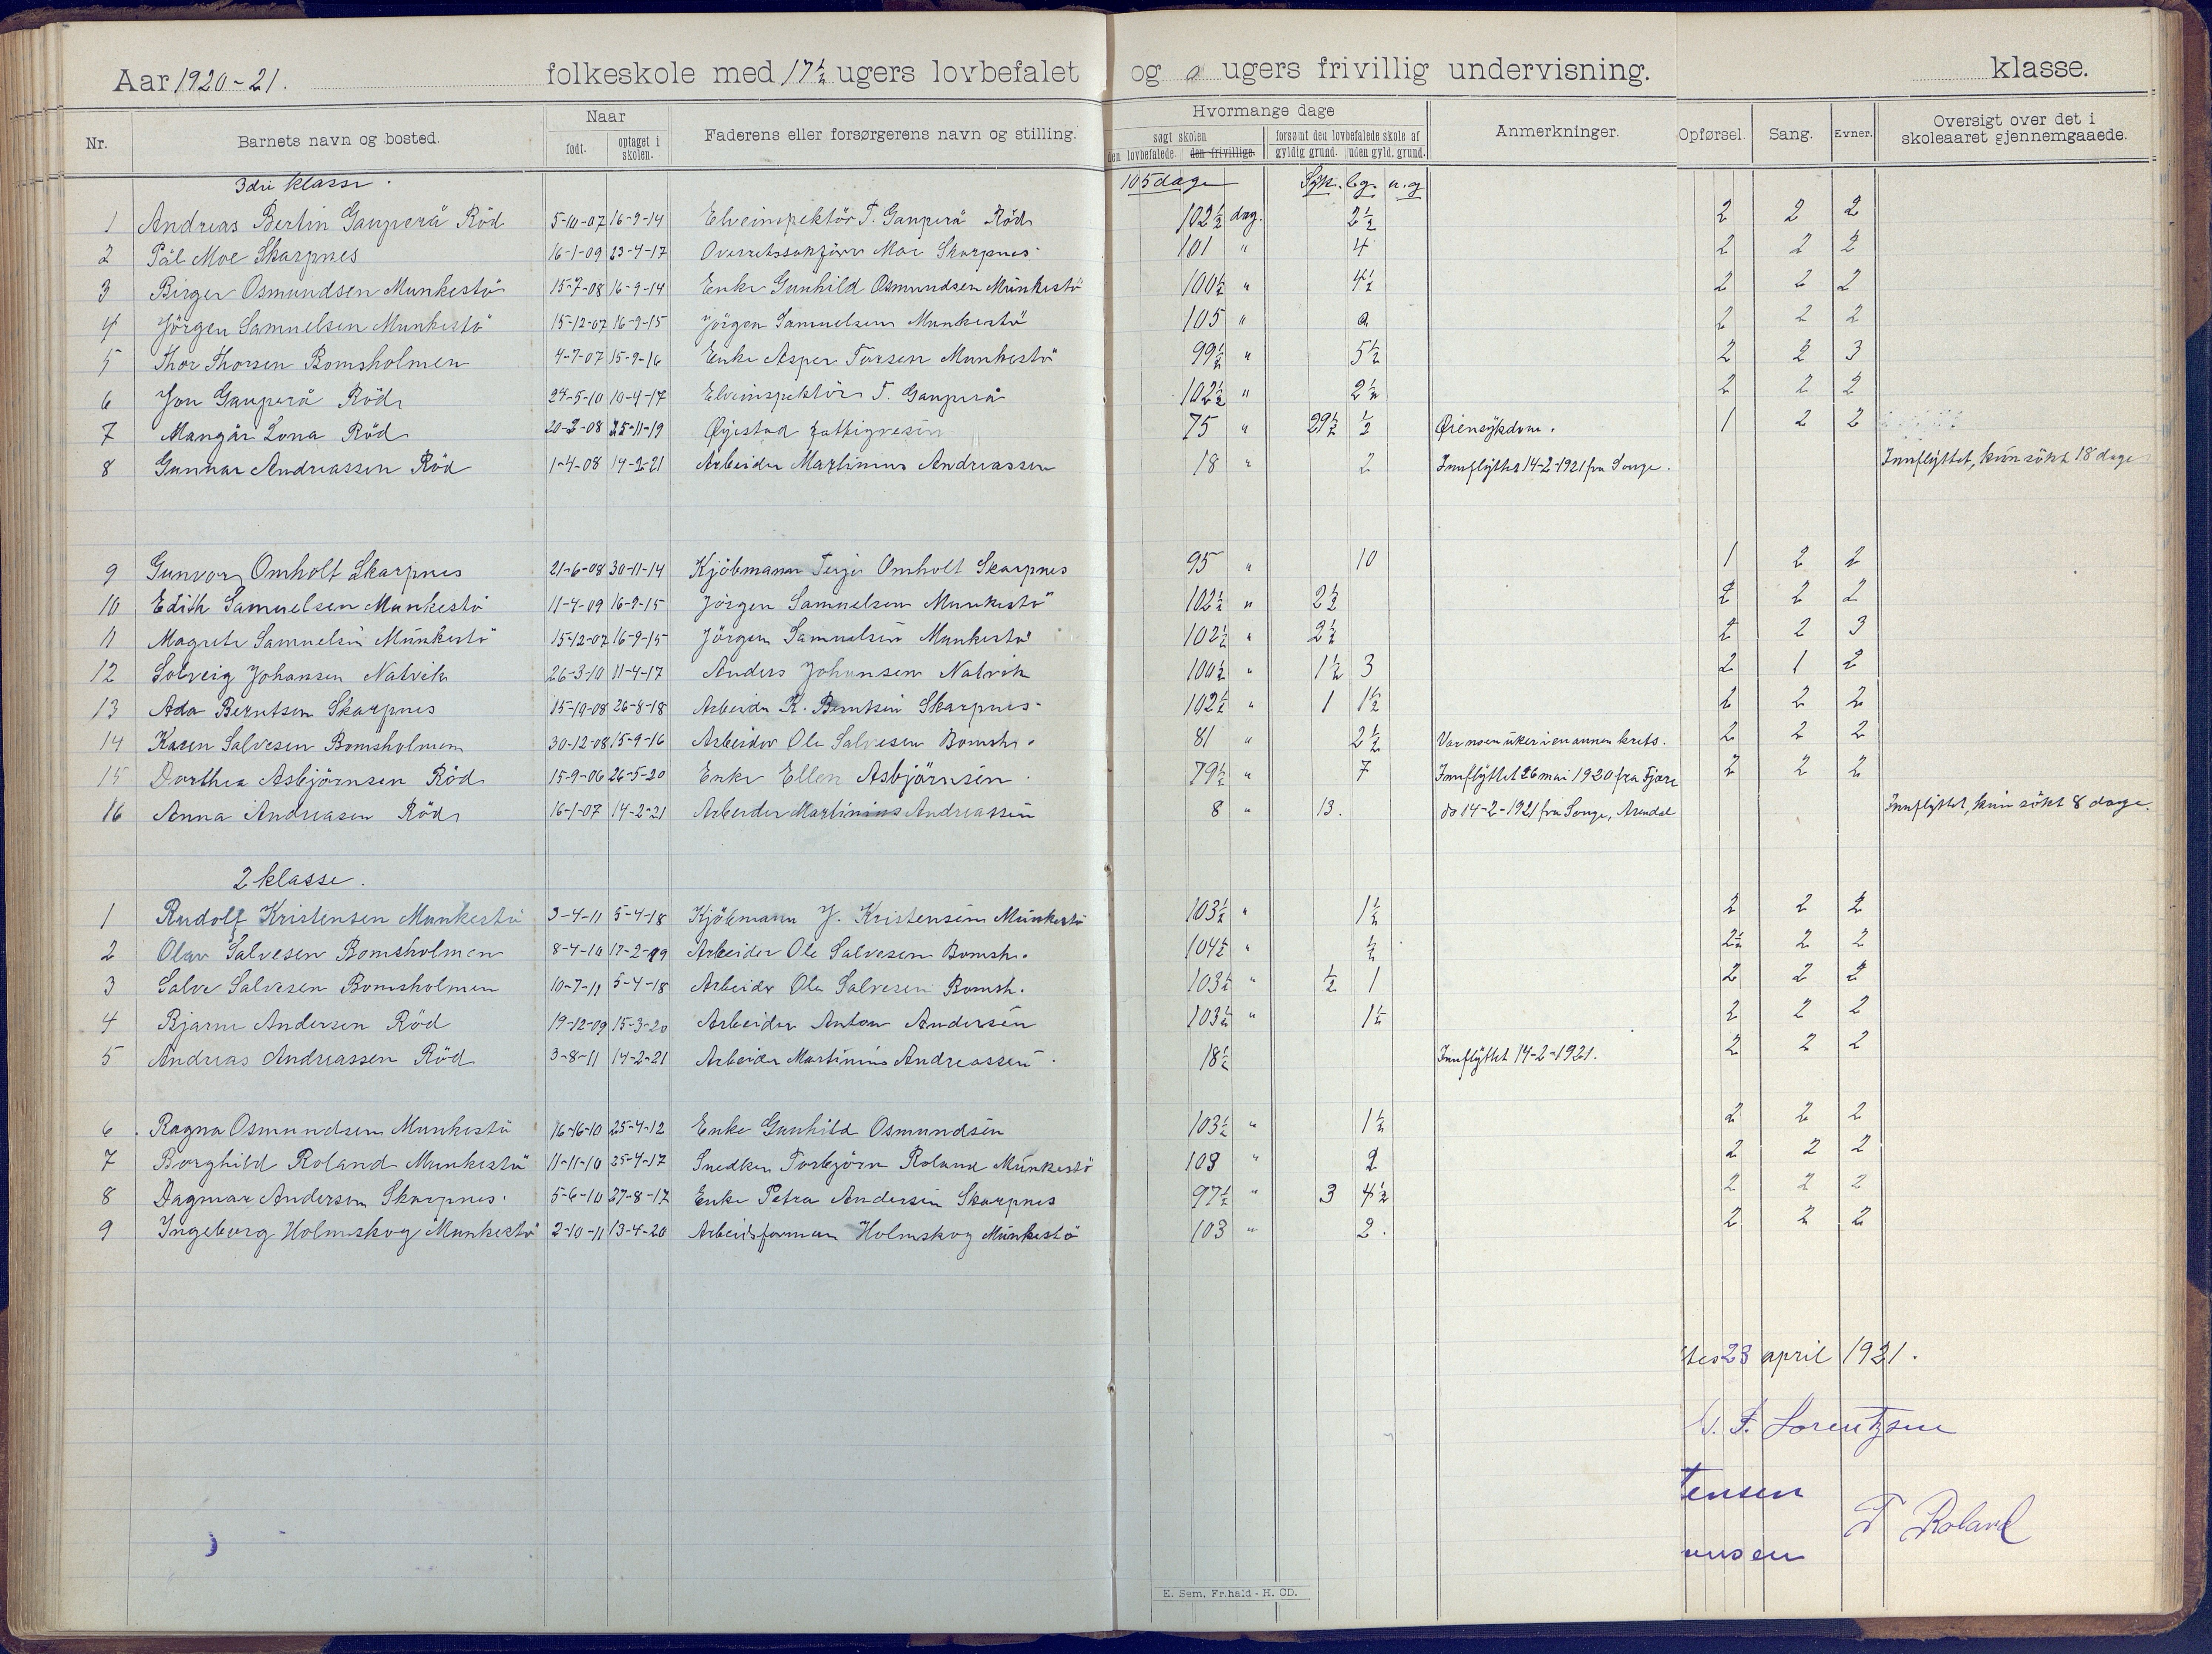 Aar 1920-21. folkeskole med 17½ ugers lovbefalet og 0 ugers frivillig undervisning. klasse.
Nr. Barnets navn og bosted. Naar født. optaget i skolen. Faderens eller forsørgerens navn og stilling. Hvormange dage søgt skolen den lovbefalede den frivillige forsømt den lovbefalede skole af gyldig grund. uden gyld. grund. Anmerkninger. Opførsel. Sang. Evner. Oversigt over det i skoleaaret gjennemgaaede.
3die klasse. 105 dage Syk. l.g. u.g
1 Andreas Bertin Gauperå Röd 5-10-07 16-9-14 Elveinspektör T. Gauperå Röd 102½ dag. 2½ 2 2 2
2 Pål Moe Skarpnes 16-1-09 23-4-17 Overretssakförer Moe Skarpnes 101 " 4 2 2 2
3 Birger Osmundsen Munkestö 15-7-08 16-9-14 Enke Gunhild Osmundsen Munkestö 100½ " 4½ 2 2 2
4 Jörgen Samuelsen Munkestö 15-12-07 16-9-15 Jörgen Samuelsen Munkestö 105 " 0 2 2 2
5 Thor Thorsen Bomsholmen 4-7-07 15-9-16 Enke Asper Torsen Munkestö 99½ " 5½ 2 2 3
6 Jon Gauperå Röd 24-5-10 10-4-17 Elveinspektör T. Gauperå 102½ " 2½ 2 2 2
7 Mangår Lona Röd 20-2-08 25-11-19 Öyestad fattigvesen 75 " 29½ ½ Öiensykdom. 1 2 2
8 Gunnar Andreassen Röd 1-4-08 14-2-21 Arbeider Martinius Andreassen 18 " 2 Innflyttet 14-2-1921 fra Songe. Innflyttet, kun sökt 18 dage
9 Gunvor Omholt Skarpnes 21-6-08 30-11-14 Kjöbmann Terje Omholt Skarpnes 95 " 10 1 2 2
10 Edith Samuelsen Munkestö 11-4-09 16-9-15 Jörgen Samuelsen Munkestö 102½ " 2½ 2 2 2
11 Magrete Samuelsen Munkestö 15-12-07 16-9-15 Jörgen Samuelsen Munkestö 102½ " 2½ 2 2 3
12 Solveig Johansen Natvik 26-3-10 11-4-17 Anders Johansen Natvik 100½ " 1½ 3 2 1 2
13 Ada Berntsen Skarpnes 15-10-08 26-8-18 Arbeider K. Berntsen Skarpnes 102½ " 1 1½ 2 2 2
14 Karen Salvesen Bomsholmen 30-12-08 15-9-16 Arbeider Ole Salvesen Bomsh. 81 " 2½ Var noen uker i en annen krets. 2 2 2
15 Dorthea Asbjörnsen Röd 15-9-06 26-5-20 Enke Ellen Asbjörnsen 79½ " 7 Innflyttet 26 mai 1920 fra Fjære 2 2 2
16 Anna Andreasen Röd 16-1-07 14-2-21 Arbeider Martinius Andreassen 8 " 13. do 14-2-1921 fra Songe, Arendal Innflyttet, kun sökt 8 dage.
2 klasse.
1 Rudolf Kristensen Munkestö 3-4-11 5-4-18 Kjöbmann J. Kristensen Munkestö 103½ " 1½ 2 2 2
2 Olav Salvesen Bomsholmen 8-4-10 17-2-19 Arbeider Ole Salvesen Bomsh. 104½ " ½ 2½ 2 2
3 Salve Salvesen Bomsholmen 10-7-11 5-4-18 Arbeider Ole Salvesen Bomsh. 103½ " ½ 1 2 2 2
4 Bjarne Andersen Röd 19-12-09 15-3-20 Arbeider Anton Andersen 103½ " 1½ 2 2 2
5 Andreas Andreassen Röd 3-8-11 14-2-21 Arbeider Martinius Andreassen 18½ Innflyttet 14-2-1921. 2 2 2
6 Ragna Osmundsen Munkestö 16-16-10 25-4-12 Enke Gunhild Osmundsen 103½ " 1½ 2 2 2
7 Borghild Roland Munkestö 11-11-10 25-4-17 Snedker Torbjörn Roland Munkestö 103 " 2 2 2 2
8 Dagmar Andersen Skarpnes. 5-6-10 27-8-17 Enke Petra Andersen Skarpnes 97½ " 3 4½ 2 2 2
9 Ingeborg Holmskog Munkestö 2-10-11 13-4-20 Arbeidsforman Holmskog Munkestö 103 " 2. 2 2 2
tes 23 april 1921.
F. Lorentzsen
tensen
T Roland
ensen
E. Sem, Fr.hald - H. CD.